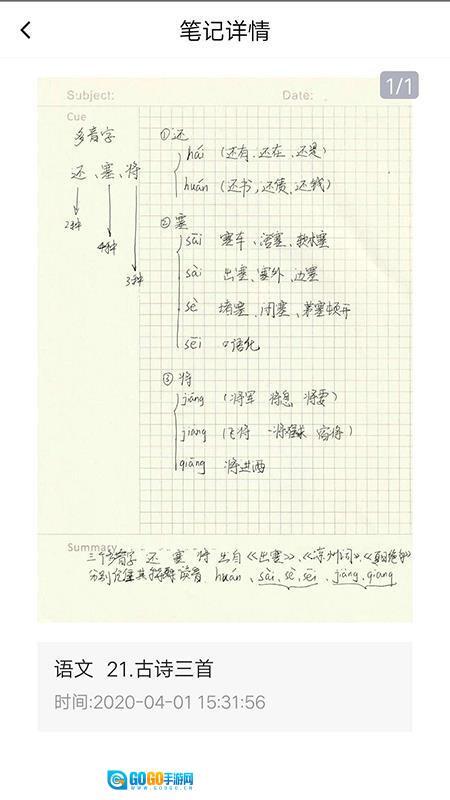 笔记详情
1/1
Subject:
Date:
Cue
多音字
还、塞、将
2种
4种
3种
①还
hái (还有、还在、还是)
huán (还书,还债、还钱)
②塞
sāi 塞车、活塞、软木塞
sài 出塞、塞外、边塞
sè 堵塞、闭塞、茅塞顿开
sēi 口语化
③将
jiāng (将军 将息 将要)
jiàng (飞将
qiāng 将进酒
Summary
三个多音字 还 塞 将 出自《出塞》、《凉州词》、《夏日绝句》
分别 读音 huán、sài、sè、sēi、jiāng、qiang
语文 21.古诗三首
时间:2020-04-01 15:31:56
GOGO手游网
WWW.GOGC.CN